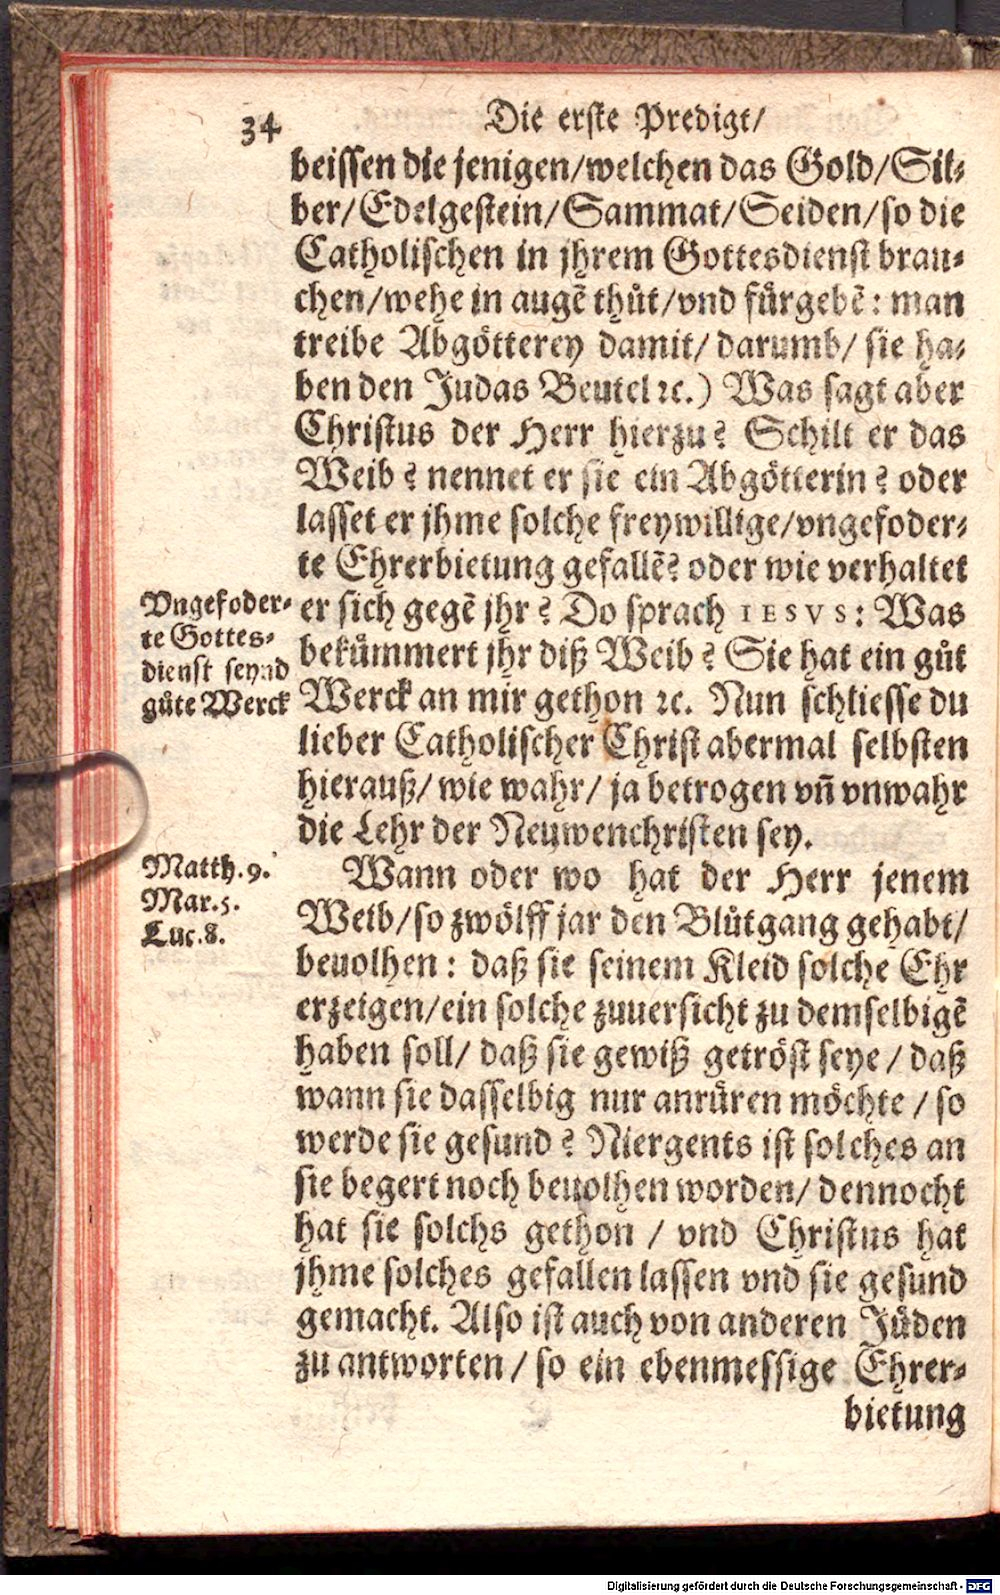 34
Die erste Predigt/
beissen die jenigen/welchen das Gold/Sil-
ber/Edelgestein/Sammat/Seiden/so die
Catholischen in jhrem Gottesdienst brau-
chen/wehe in augẽ thůt/vnd fürgebẽ: man
treibe Abgötterey damit/ darumb/ sie ha-
ben den Judas Beutel ꝛc.) Was sagt aber
Christus der Herr hierzu? Schilt er das
Weib? nennet er sie ein Abgötterin? oder
lasset er jhme solche freywillige/vngefoder-
te Ehrerbietung gefallẽ? oder wie verhaltet
er sich gegẽ jhr? Do sprach IESVS: Was
bekümmert jhr diß Weib? Sie hat ein gůt
Werck an mir gethon ꝛc. Nun schliesse du
lieber Catholischer Christ abermal selbsten
hierauß/ wie wahr/ ja betrogen vñ vnwahr
die Lehr der Neuwenchristen sey.
Vngefoder-
te Gottes-
dienst seynd
gůte Werck
Wann oder wo hat der Herr jenem
Weib/so zwölff jar den Blůtgang gehabt/
beuolhen: daß sie seinem Kleid solche Ehr
erzeigen/ein solche zuuersicht zu demselbigẽ
haben soll/ daß sie gewiß getröst seye/ daß
wann sie dasselbig nur anrüren möchte/ so
werde sie gesund? Niergents ist solches an
sie begert noch beuolhen worden/ dennocht
hat sie solchs gethon/ vnd Christus hat
jhme solches gefallen lassen vnd sie gesund
gemacht. Also ist auch von anderen Jüden
zu antworten/ so ein ebenmessige Ehrer-
bietung
Matth.9.
Mar.5.
Luc.8.
Digitalisierung gefördert durch die Deutsche Forschungsgemeinschaft - DFG